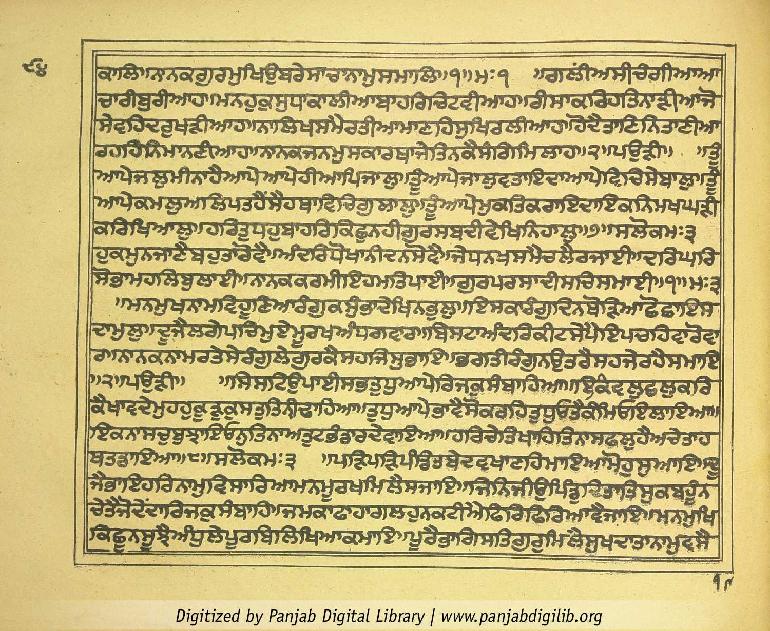 ੯੪
ਕਾਲਿ॥ਨਾਨਕਗੁਰਮੁਖਿਉਬਰੇਸਾਚਾਨਾਮੁਸਮਾਲਿ॥੧॥ਮਃ੧ ॥ਗਲੀਅਸੀਚੰਗੀਆਆ
ਚਾਰੀਬੁਰੀਆਹ॥ਮਨਹੁਕੁਸੁਧਾਕਾਲੀਆਬਾਹਰਿਚਿਟਵੀਆਹ॥ਰੀਸਾਕਰਿਹਤਿਨਾੜੀਆਜੋ
ਸੇਵਹਿਦਰੁਖੜੀਆਹ॥ਨਾਲਿਖਸਮੈਰਤੀਆਮਾਣਹਿਸੁਖਿਰਲੀਆਹ॥ਹੋਦੈਤਾਣਿਨਿਤਾਣੀਆ
ਰਹਹਿਨਿਮਾਨਣੀਆਹ॥ਨਾਨਕਜਨਮੁਸਕਾਰਥਾਜੇਤਿਨਕੈਸੰਗਿਮਿਲਾਹ॥੨॥ਪਉੜੀ॥ ॥ਤੂੰ
ਆਪੇਜਲੁਮੀਨਾਹੈਆਪੇਆਪੇਹੀਆਪਿਜਾਲੁ॥ਤੂੰਆਪੇਜਾਲੁਵਤਾਇਦਾਆਪੇਵਿਚਿਸੇਬਾਲੁ॥ਤੂੰ
ਆਪੇਕਮਲੁਅਲਿਪਤੁਹੈਸੈਹਥਾਵਿਚਿਗੁਲਾਲੁ॥ਤੂੰਆਪੇਮੁਕਤਿਕਰਾਇਦਾਇਕਨਿਮਖਘੜੀ
ਕਰਿਖਿਆਲੁ॥ਹਰਿਤੁਧਹੁਬਾਹਰਿਕਿਛੁਨਹੀਗੁਰਸਬਦੀਵੇਖਿਨਿਹਾਲੁ॥੭॥ਸਲੋਕਮਃ੩
ਹੁਕਮੁਨਜਾਣੈਬਹੁਤਾਰੋਵੈ॥ਅੰਦਰਿਧੋਖਾਨੀਦਨਸੋਵੈ॥ਜੇਧਨਖਸਮੈਚਲੈਰਜਾਈ॥ਦਰਿਘਰਿ
ਸੋਭਾਮਹਲਿਬੁਲਾਈ॥ਨਾਨਕਕਰਮੀਇਹਮਤਿਪਾਈ॥ਗੁਰਪਰਸਾਦੀਸਚਿਸਮਾਈ॥੧॥ਮਃ੩
॥ਮਨਮੁਖਨਾਮਵਿਹੂਣਿਆਰੰਗੁਕਸੁੰਭਾਦੇਖਿਨਭੁਲੁ॥ਇਸਕਾਰੰਗੁਦਿਨਥੋੜਿਆਛੋਛਾਇਸ
ਦਾਮੁਲੁ॥ਦੂਜੈਲਗੇਪਚਿਮੁਏਮੂਰਖਅੰਧਗਵਾਰ॥ਬਿਸਟਾਅੰਦਰਿਕੀਟਸੇਪੈਇਪਚਹਿਵਾਰੋਵਾ
ਰ॥ਨਾਨਕਨਾਮਰਤੇਸੇਰੰਗੁਲੇਗੁਰਕੈਸਹਜਿਸੁਭਾਇ॥ਭਗਤੀਰੰਗੁਨਉਤਰੈਸਹਜੇਰਹੈਸਮਾਇ
॥੨॥ਪਉੜੀ॥ ॥ਸਿਸਟਿਉਪਾਈਸਭਤੁਧੁਆਪੇਰਿਜਕੁਸੰਬਾਹਿਆ॥ਇਕਿਵਲੁਛਲੁਕਰਿ
ਕੈਖਾਵਦੇਮੁਹਹੁਕੂੜੁਕੁਸਤੁਤਿਨੀਢਾਹਿਆ॥ਤੁਧੁਆਪੇਭਾਵੈਸੋਕਰਹਿਤੁਧੁਓਤੈਕੰਮਿਓਇਲਾਇਆ॥
ਇਕਨਾਸਚੁਬੁਝਾਇਓਨੁਤਿਨਾਅਤੁਟਭੰਡਾਰਦੇਵਾਇਆ॥ਹਰਿਚੇਤਿਖਾਹਿਤਿਨਾਸਫਲੁਹੈਅਚੇਤਾਹ
ਥਤਡਾਇਆ॥੮॥ਸਲੋਕਮਃ੩ ॥ਪੜਿਪੜਿਪੰਡਿਤਬੇਦਵਖਾਣਹਿਮਾਇਆਮੋਹਸੁਆਇ॥ਦੂ
ਜੈਭਾਇਹਰਿਨਾਮੁਵਿਸਾਰਿਆਮਨਮੂਰਖਮਿਲੈਸਜਾਇ॥ਜਿਨਿਜੀਉਪਿੰਡੁਦਿਤਾਤਿਸੁਕਬਹੂੰਨ
ਚੇਤੈਜੋਦੇਂਦਾਰਿਜਕੁਸੰਬਾਹਿ॥ਜਮਕਾਫਾਹਾਗਲਹੁਨਕਟੀਐਫਿਰਿਫਿਰਿਆਵੈਜਾਇ॥ਮਨਮੁਖਿ
ਕਿਛੂਨਸੂਝੈਅੰਧੁਲੇਪੂਰਬਿਲਿਖਿਆਕਮਾਇ॥ਪੂਰੈਭਾਗਿਸਤਿਗੁਰੁਮਿਲੈਸੁਖਦਾਤਾਨਾਮੁਵਸੈ
Digitized by Panjab Digital Library | www.panjabdigilib.org